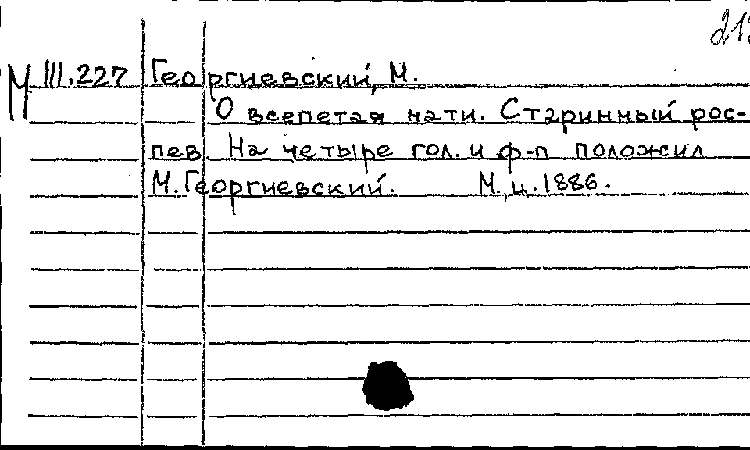 213
М III.227 Георгиевский, М.
О всепетая мати. Старинный рос-
пев. На четыре гол. и ф-п положил
М. Георгиевский. М., ц. 1886.